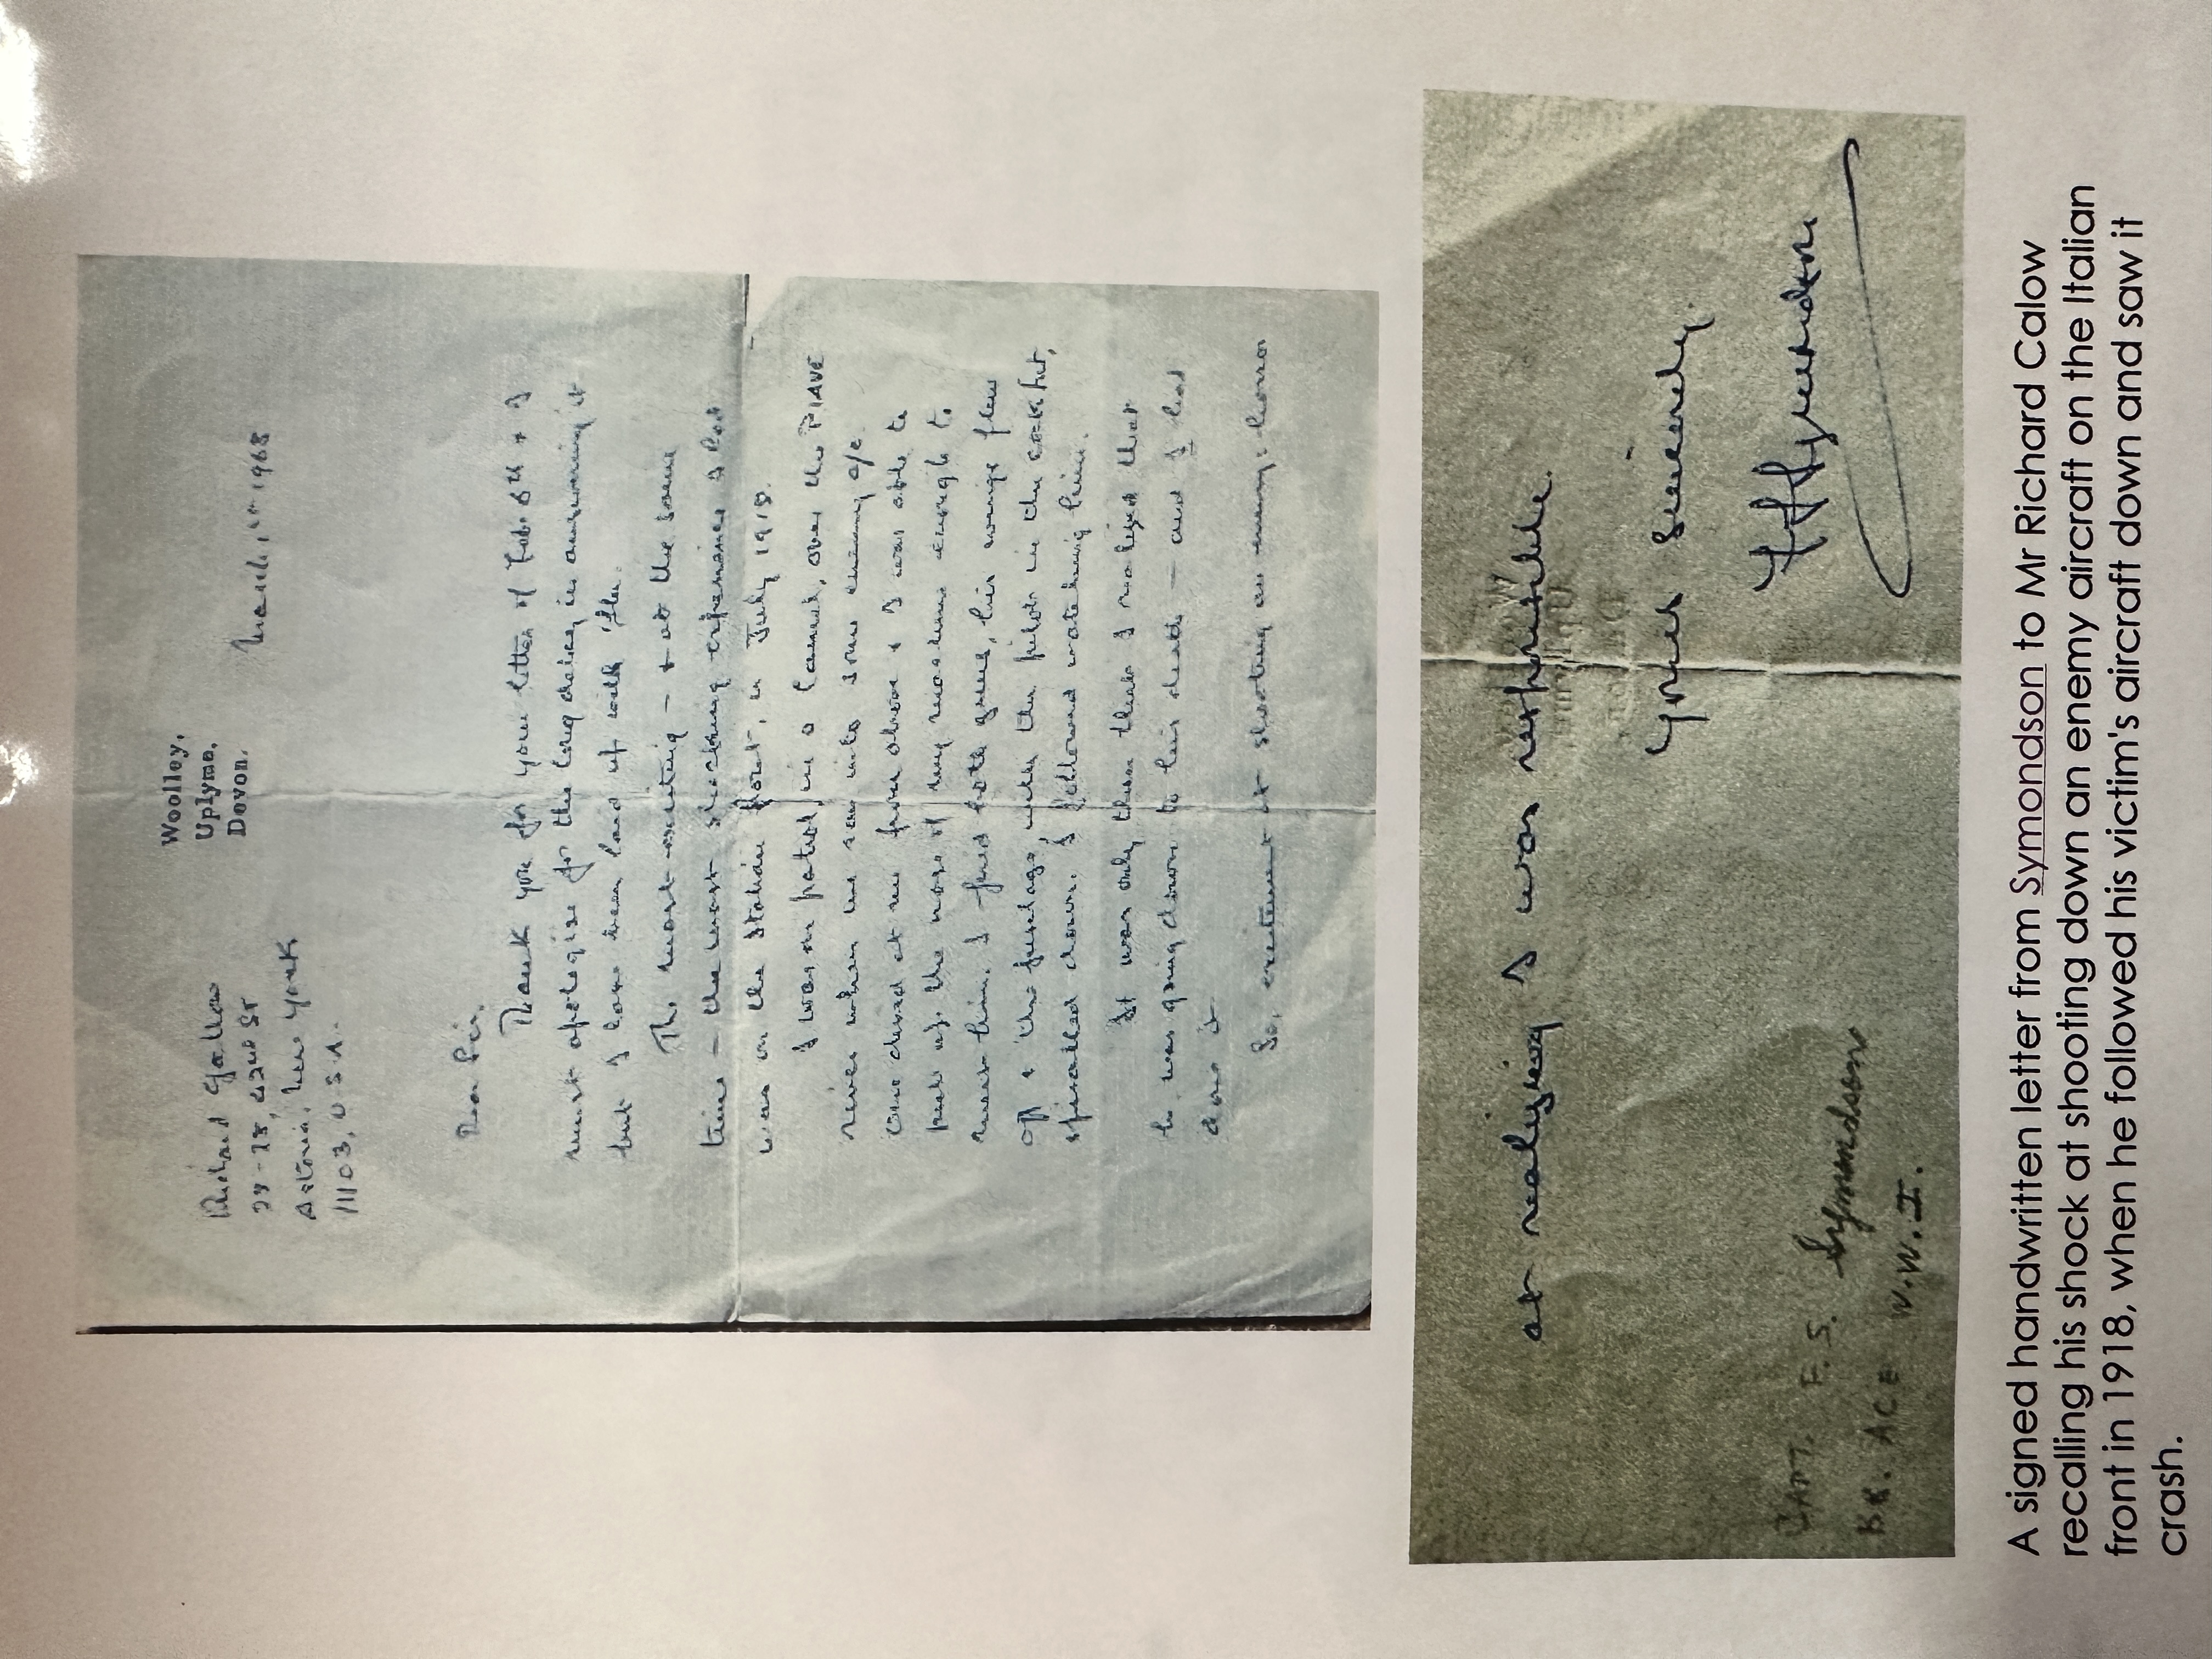 Woolley,
Uplyme,
Devon.
Richard
28-28, 42nd St
Astoria, New York
11103, U.S.A.
March, 1968
Dear Sir,
Thank you for your letter of Feb. 6th & I
must apologise for the long delay in answering it
but I have been laid up with 'flu.
The most exciting – & at the same
time – the most shocking experience I had
was on the Italian front, in July 1918.
I was on patrol, in a Camel, over the PIAVE
river when we ran into some enemy a/c.
One dived at me from above & I was able to
pull up the nose of my machine enough to
meet him. I fired both guns, his wings flew
off & the fuselage, with the pilot in the cockpit,
spiralled down. I followed watching him.
It was only then that I realized that
he was going down to his death – and I had
done it
So, excitement at shooting an enemy: horror
at realizing I was responsible.
Yours sincerely.
CAPT. F.S. Symondson
BR. ACE W.W.I.
A signed handwritten letter from Symondson to Mr Richard Calow
recalling his shock at shooting down an enemy aircraft on the Italian
front in 1918, when he followed his victim's aircraft down and saw it
crash.